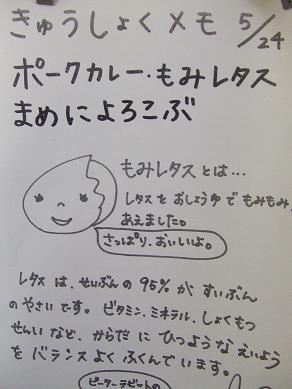 きゅうしょくメモ 5/24
ポークカレー・もみレタス
まめによろこぶ
もみレタスとは…
レタスをおしょうゆでもみもみ、
あえました。
さっぱり、おいしいよ。
レタスは、せいぶんの95%がすいぶん
のやさいです。ビタミン、ミネラル、しょくもつ
せんいなど、からだにひつようなえいよう
をバランスよくふくんでいます。
ピーターラビットの